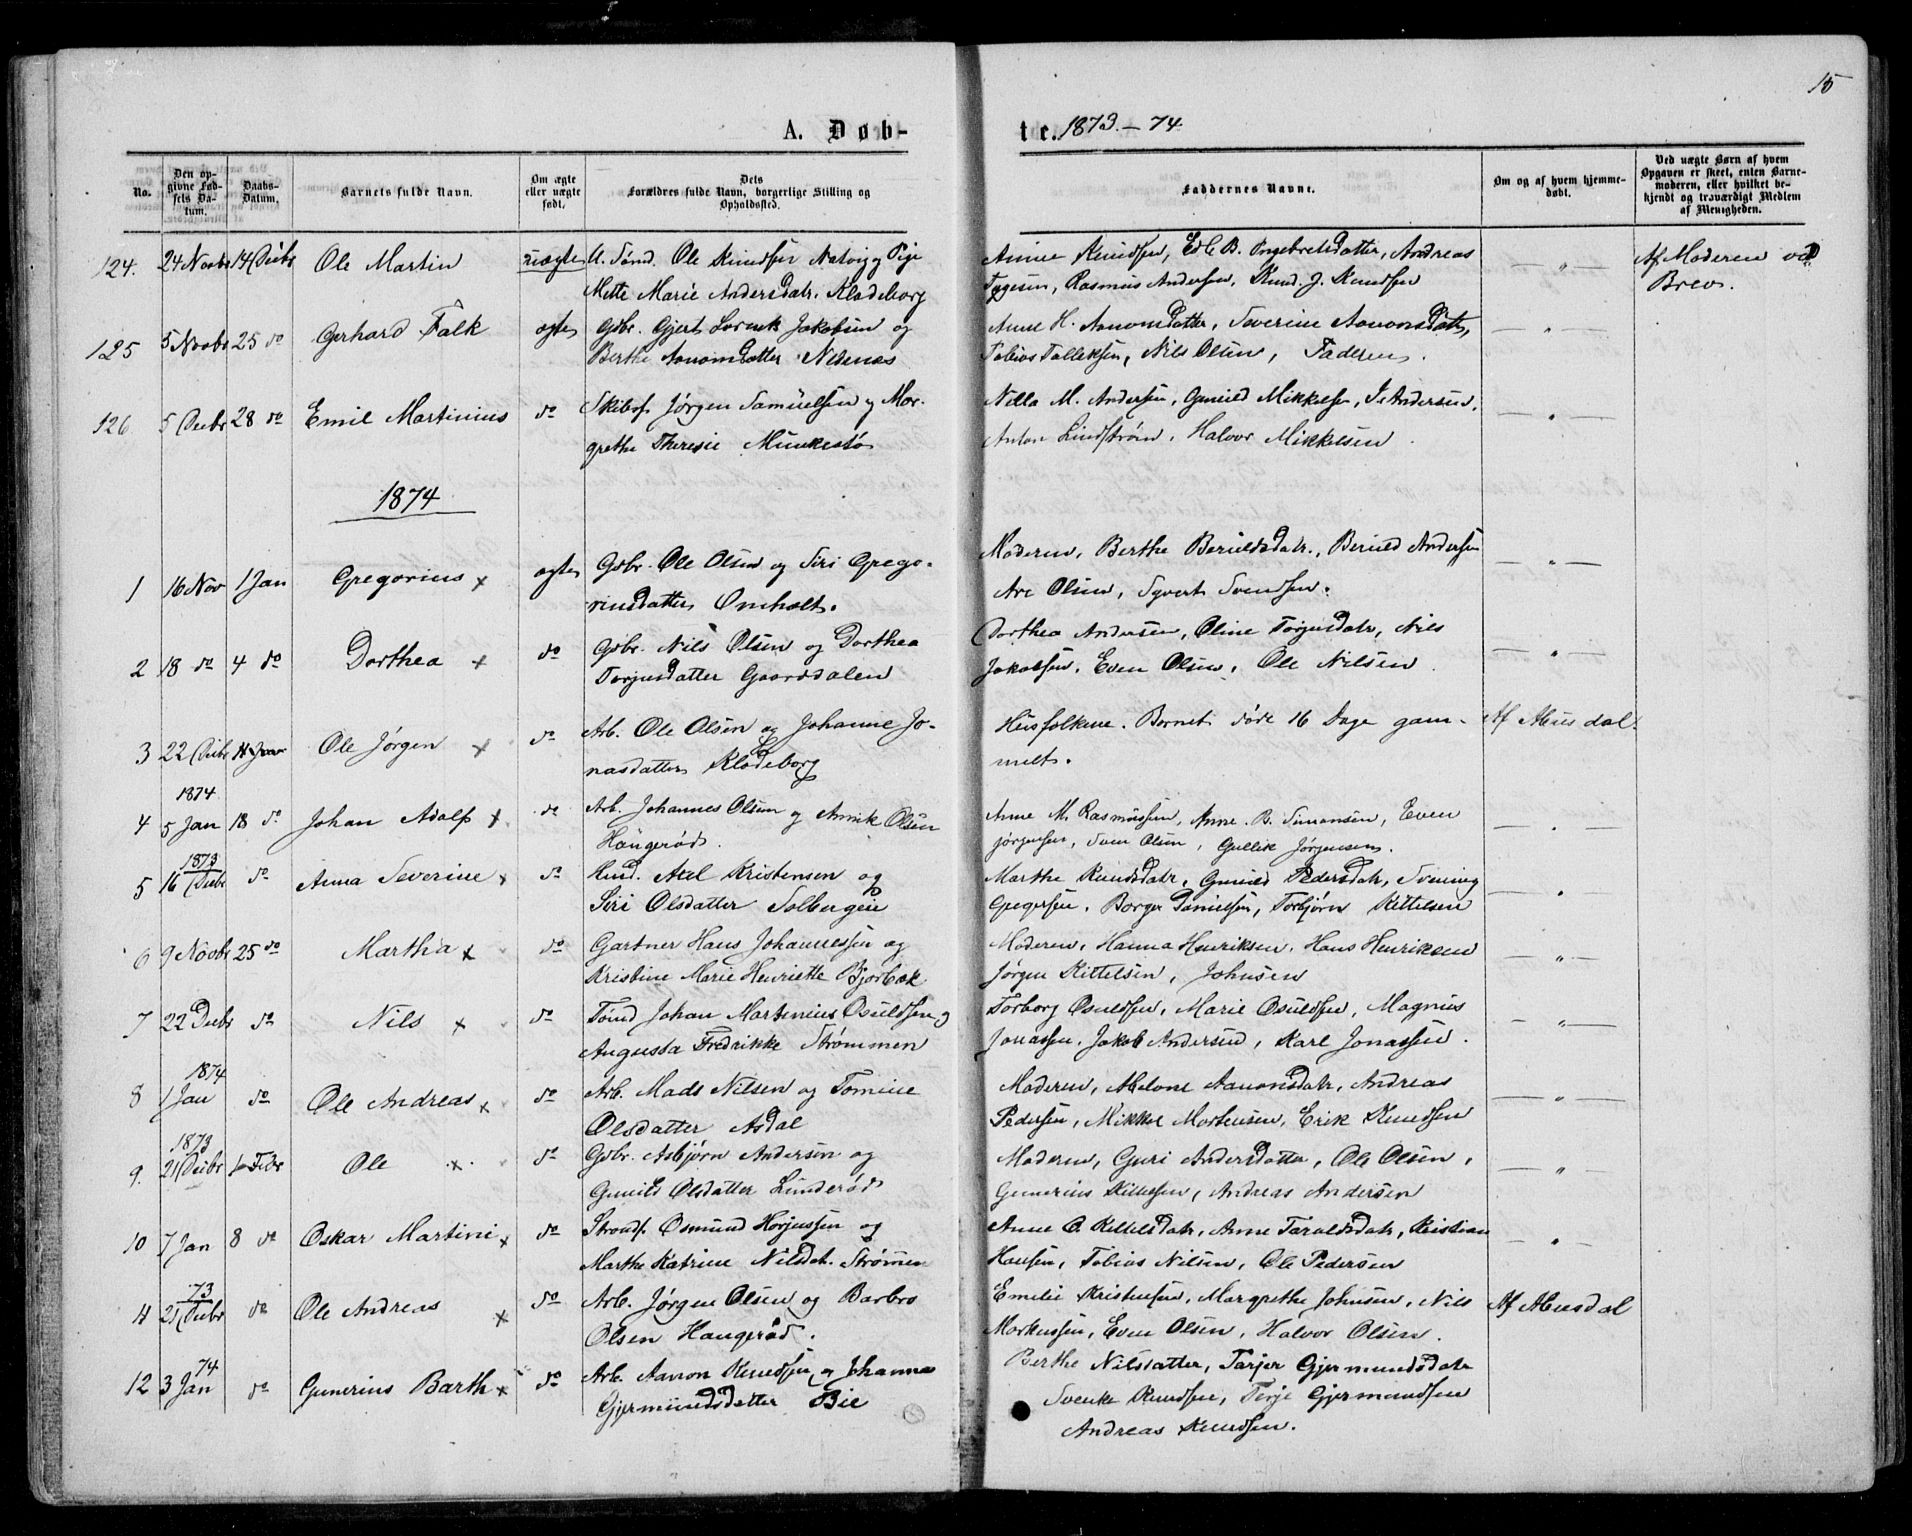 15
A. Døb-
te. 1873.-74
No.
Den op-
givne Fød-
sels Da-
tum.
Daabs-
Datum.
Barnets fulde Navn.
Om ægte
eller uægte
født.
Dets
Forældres fulde Navn, borgerlige Stilling og
Opholdssted.
Faddernes Navne.
Om og af hvem hjemme-
døbt.
Ved uægte Børn af hvem
Opgaven er skeet, enten Barne-
moderen, eller hvilket be-
kjendt og troværdigt Medlem
af Menigheden.
124. 24 Novbr 14 Decbr Ole Martin uægte U. Tønd. Ole Knudsen Natvig og Pige
Mette Marie Andersdatr. Klodeborg
Anne Knudsen, Edle B. Ingebretsdatter, Andreas
Tygesen, Rasmus Andersen, Knud. J. Knudsen
— " —
Af Moderen ved
Brev.
125 5 Novbr 25 do Gerhard Falk ægte Gbr. Gjert Lorents Jakobsen og
Berthe Aanonsdatter Nedenæs
Anne H. Aanonsdatter, Severine Aanonsdatr,
Tobias Tallaksen, Nils Olsen, Faderen.
— " —
126 5 Decbr 28 do Emil Martinius do Skibsf. Jørgen Samuelsen og Mar-
grethe Theresie Munkestø
Nilla M. Andersen, Gunild Mikkelsen, J. Andersen,
Anton Lindstrøm, Halvor Mikkelsen
— " —
1874
1 16 Nov 1 Jan Gregorius x ægte Gbr. Ole Olsen og Siri Grego-
riusdatter Omholt.
Moderen, Berthe Beruldsdatr., Beruld Andersen
Are Olsen, Syvert Svendsen.
— " —
2 18 do 4 do Dorthea x do Gbr. Nils Olsen og Dorthea
Torjusdatter Gaarddalen
Dorthea Andersen, Oline Torjusdatr, Nils
Jakobsen, Even Olsen, Ole Nilsen.
— " —
3 22 Decbr 11 Jan Ole Jørgen x do Arb. Ole Olsen og Johanne Jo-
nasdatter Klodeborg
Husfolkene. Barnet døde 16 Dage gam-
melt.
Af Aleusdal.
1874
4 5 Jan 18 do Johan Adolf x do Arb. Johannes Olsen og Annik Olsen
Haugerød.
Anne M. Rasmussen, Anne. B. Simonsen, Even
Jørgensen, Sven Olsen, Gullik Jørgensen.
— " —
1873
5 16 Decbr do Anna Severine x do Hmd. Axel Kristensen og
Siri Olsdatter Solbergeie
Marthe Knudsdatr, Gunild Pedersdatr, Svening
Gregersen. Børge Danielsen, Torbjørn Kittelsen
— " —
6 9 Novbr 25 do Martha x do Gartner Hans Johannessen og
Kristine Marie Henriette Bjorbæk
Moderen, Hanna Henriksen, Hans Henriksen
Jørgen Kittelsen, Johnsen
— " —
7 22 Decbr do Nils x do Tønd Johan Martinius Osuldsen og
Augusta Fredrikke Strømmen
Torborg Osuldsen, Marie Osuldsen, Magnus
Jonassen, Jakob Andersen, Karl Jonassen.
— " —
1874
8 1 Jan do Ole Andreas x do Arb. Mads Nilsen og Tomine
Olsdatter Asdal
Moderen, Alevne Aanonsdatr, Andreas
Pedersen, Mikkel Mortensen, Erik Knudsen
— " —
1873
9. 21 Decbr 1 Febr Ole x do Gbr. Asbjørn Andersen og
Gunild Olsdatter Lunderød
Moderen, Guri Andersdatter, Ole Olsen,
Gunerius Kittelsen, Andreas Andersen
— " —
10 7 Jan 8 do Oskar Martini x do Strandf. Osmund Horjussen og
Marthe Katrine Nilsdat. Strømen
Anne O. Kittelsdatr, Anne Taraldsdatr, Kristian
Hansen, Tobias Nilsen, Ole Pedersen
— " —
73
11 21 Decbr do Ole Andreas x do Arb. Jørgen Olsen og Barbro
Olsen Haugerød.
Emilie Kristensen, Margrethe Johnsen, Nils
Markussen, Even Olsen, Halvor Olsen.
Af Aleusdal
74
12 3 Jan do Gunerius Barth x do Arb. Aanon Knudsen og Johanne
Gjermundsdatter Bie
Berthe Nilsdatter, Tarjer Gjermundsdatr
Svenke Knudsen, Terje Gjermundsen
Andreas Knudsen.